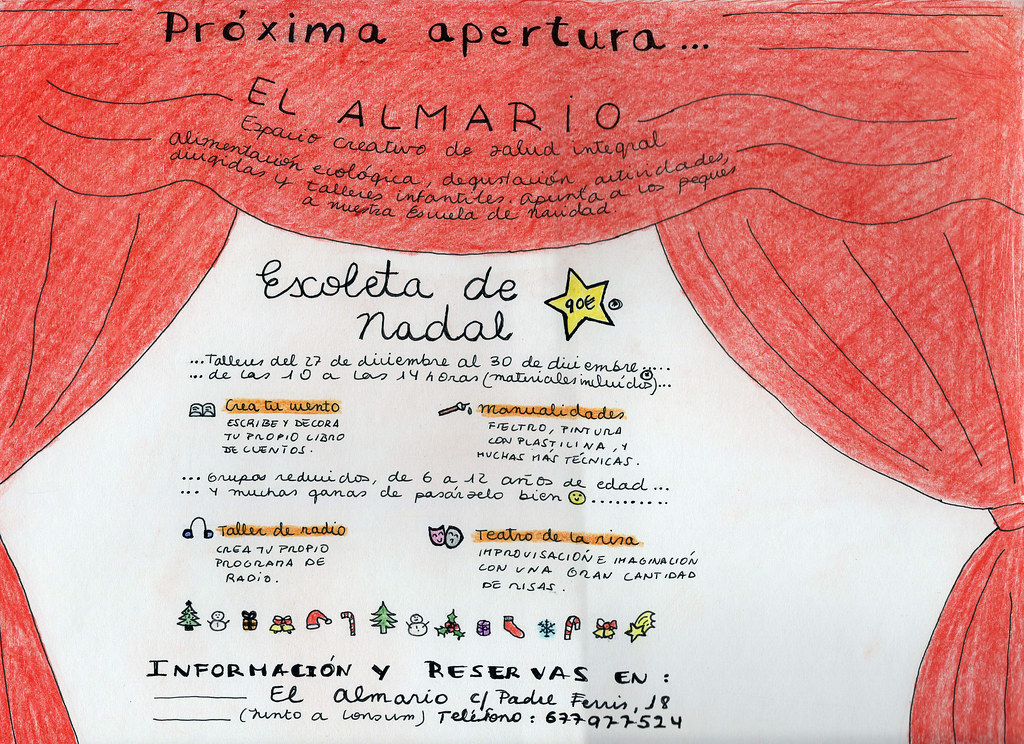 Próxima apertura...
EL ALMARIO
Espacio creativo de salud integral
alimentación ecológica, degustación, actividades,
dirigidas y talleres infantiles. apunta a los peques
a nuestra escuela de navidad.
Escoleta de
nadal
90€ *
...Talleres del 27 de diciembre al 30 de diciembre.....
...de las 10 a las 14 horas (materiales incluidos)*...
Crea tu cuento
ESCRIBE Y DECORA
TU PROPIO LIBRO
DE CUENTOS.
Manualidades
FIELTRO, PINTURA
CON PLASTILINA, Y
MUCHAS MÁS TÉCNICAS.
... Grupos reducidos, de 6 a 12 años de edad ...
... Y muchas ganas de pasárselo bien ..........
Taller de radio
CREA TU PROPIO
PROGRAMA DE
RADIO.
Teatro de la risa
IMPROVISACIÓN E IMAGINACIÓN
CON UNA GRAN CANTIDAD
DE RISAS.
INFORMACIÓN Y RESERVAS EN:
El almario c/ Padre Ferris, 18
(Junto a consum) Teléfono: 677977524